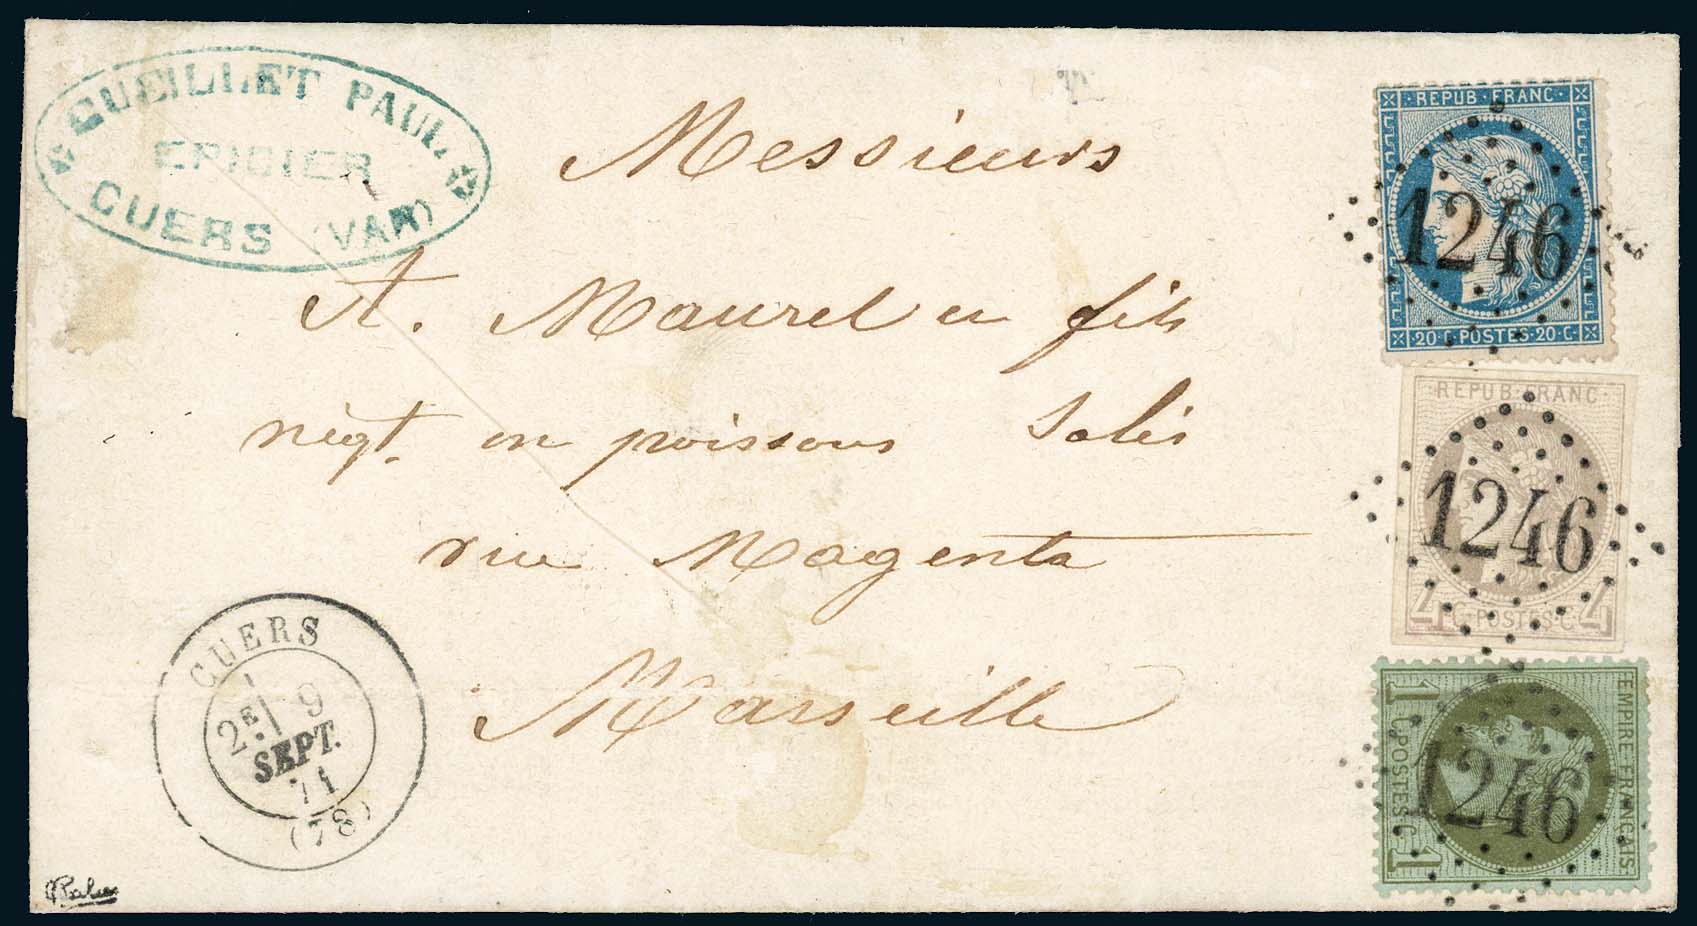 GUEILLET PAUL
EPICIER
CUERS (VAR)
Messieurs
A. Maurel en fils
négt. en poissons Salés
rue Magenta
Marseille
CUERS
2E 9
SEPT.
71
(78)
REPUB·FRANC·
1246
20·C·POSTES·20·C·
REPUB·FRANC·
1246
4 C·POSTES·C· 4
EMPIRE FRANÇAIS
1246
1 C·POSTES·C· 1